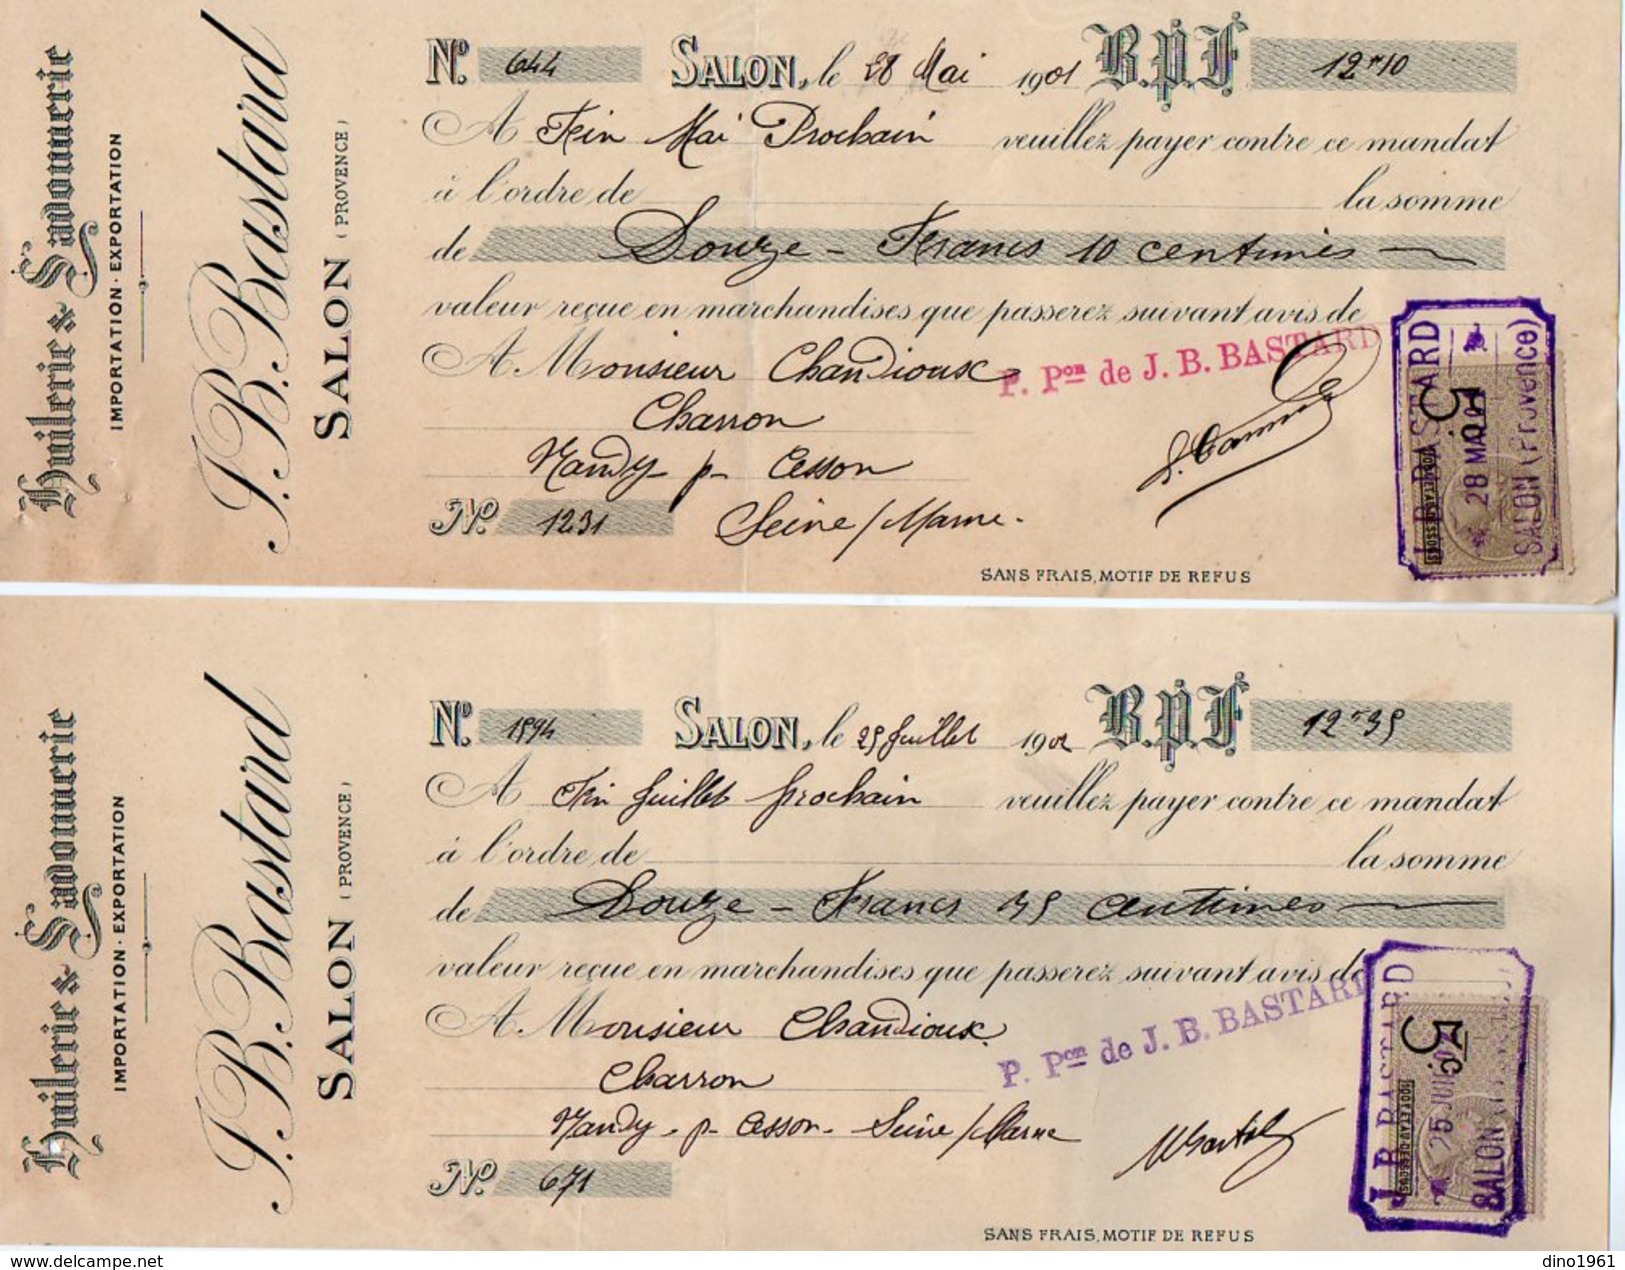 Huilerie & Savonnerie
IMPORTATION · EXPORTATION
J. B. Bastard
SALON (PROVENCE)
No. 644 SALON, le 28 Mai 1901 B.P.F. 12 f 10
A Fin Mai Prochain veuillez payer contre ce mandat
à l'ordre de la somme
de Douze - Francs 10 centimes
valeur reçue en marchandises que passerez suivant avis de
P. Pon de J. B. BASTARD
A Monsieur Chandioux
Charron
Nandy p. Cesson
No. 1231 Seine/Marne.
SANS FRAIS, MOTIF DE REFUS
J. B. BASTARD
5c.
28 MAI 01
SALON (Provence)
Huilerie & Savonnerie
IMPORTATION · EXPORTATION
J. B. Bastard
SALON (PROVENCE)
No. 1894 SALON, le 25 Juillet 1902 B.P.F. 12 f 35
A Fin Juillet prochain veuillez payer contre ce mandat
à l'ordre de la somme
de Douze - Francs 35 centimes
valeur reçue en marchandises que passerez suivant avis de
P. Pon de J. B. BASTARD
A Monsieur Chandioux
Charron
Nandy - p. Cesson - Seine/Marne
No. 671
SANS FRAIS, MOTIF DE REFUS
J. B. BASTARD
5c.
25 JUIL 02
SALON
delcampe.net
dino1961